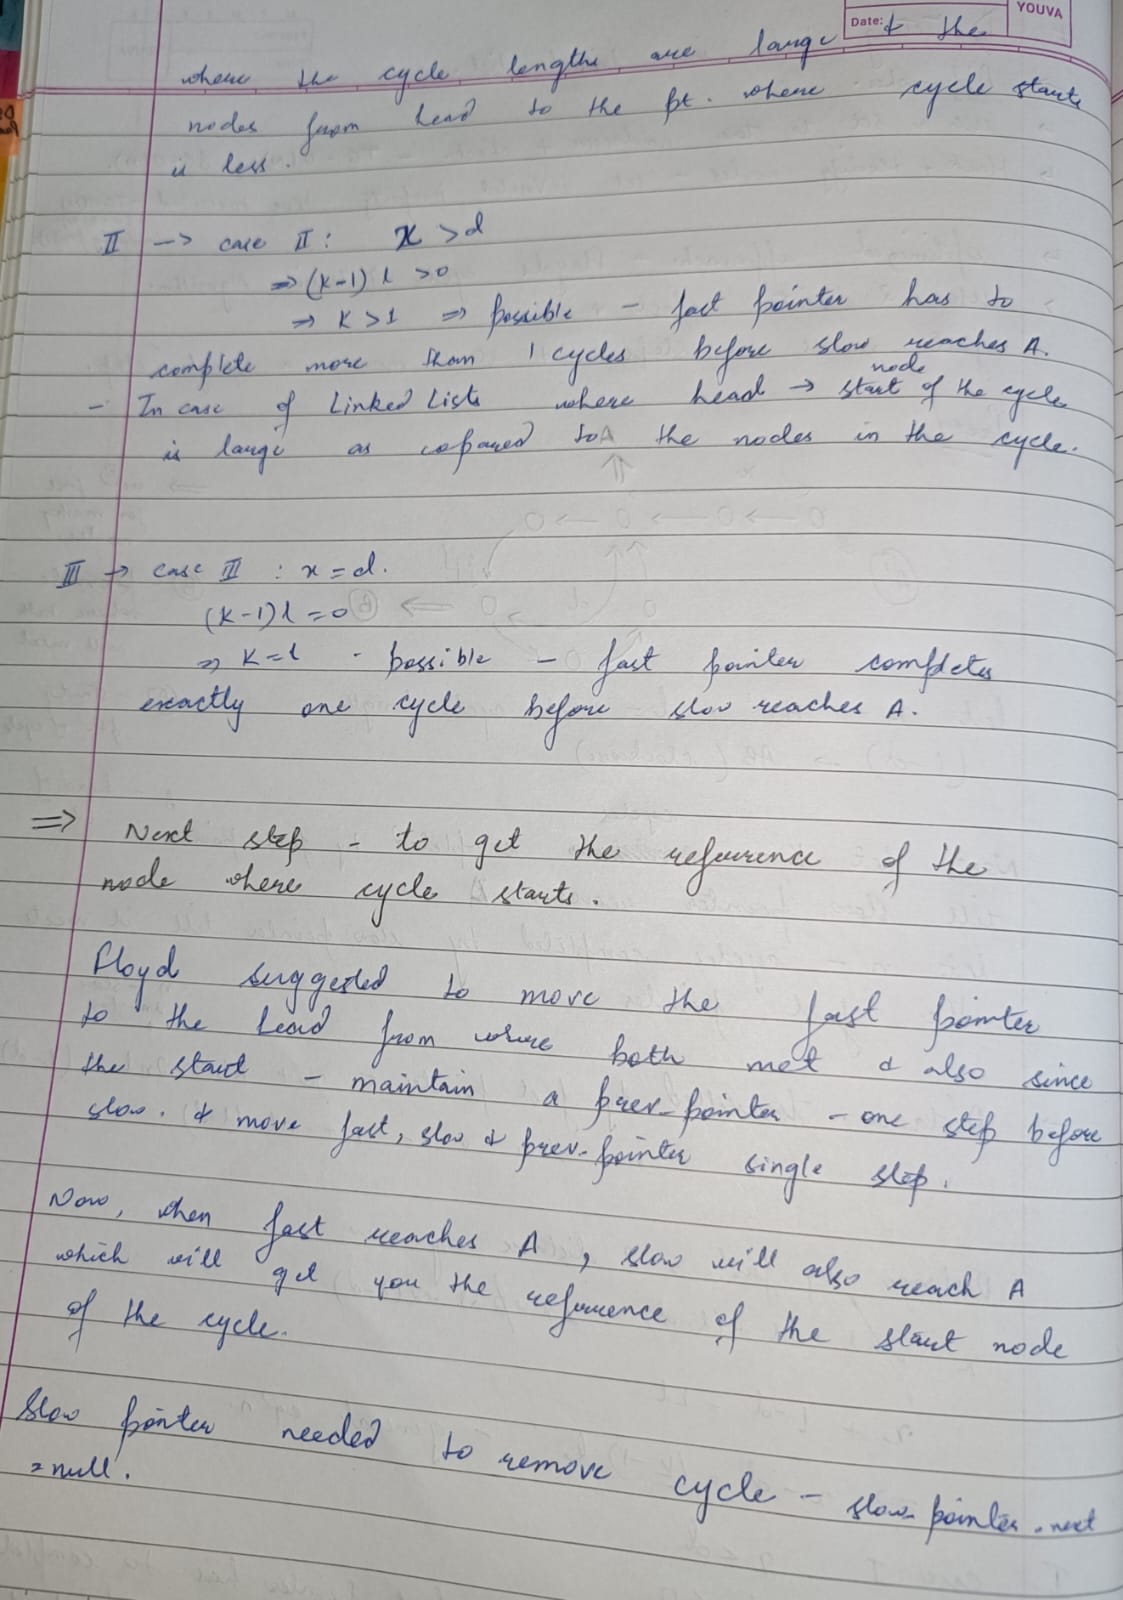 YOUVA
Date:
where the cycle lengths are large & the
nodes from head to the pt. where cycle starts
is less.
II -> case II : x > d
=> (k-1) l > 0
=> K > 1 => possible - fast pointer has to
complete more than 1 cycles before slow reaches A.
- In case of Linked Lists where head -> start node of the cycle
is large as copared to the nodes in the cycle.
III -> case III : x = d.
(k-1) l = 0
=> K = 1 - possible - fast pointer completes
exactly one cycle before slow reaches A.
=> Next step - to get the reference of the
node where cycle starts.
Floyd suggested to move the fast pointer
to the head from where both met & also since
the start - maintain a prev-pointer - one step before
slow. & move fast, slow & prev-pointer single step.
Now, when fast reaches A, slow will also reach A
which will get you the reference of the start node
of the cycle.
Slow pointer needed to remove cycle - slow-pointer.next
= null.